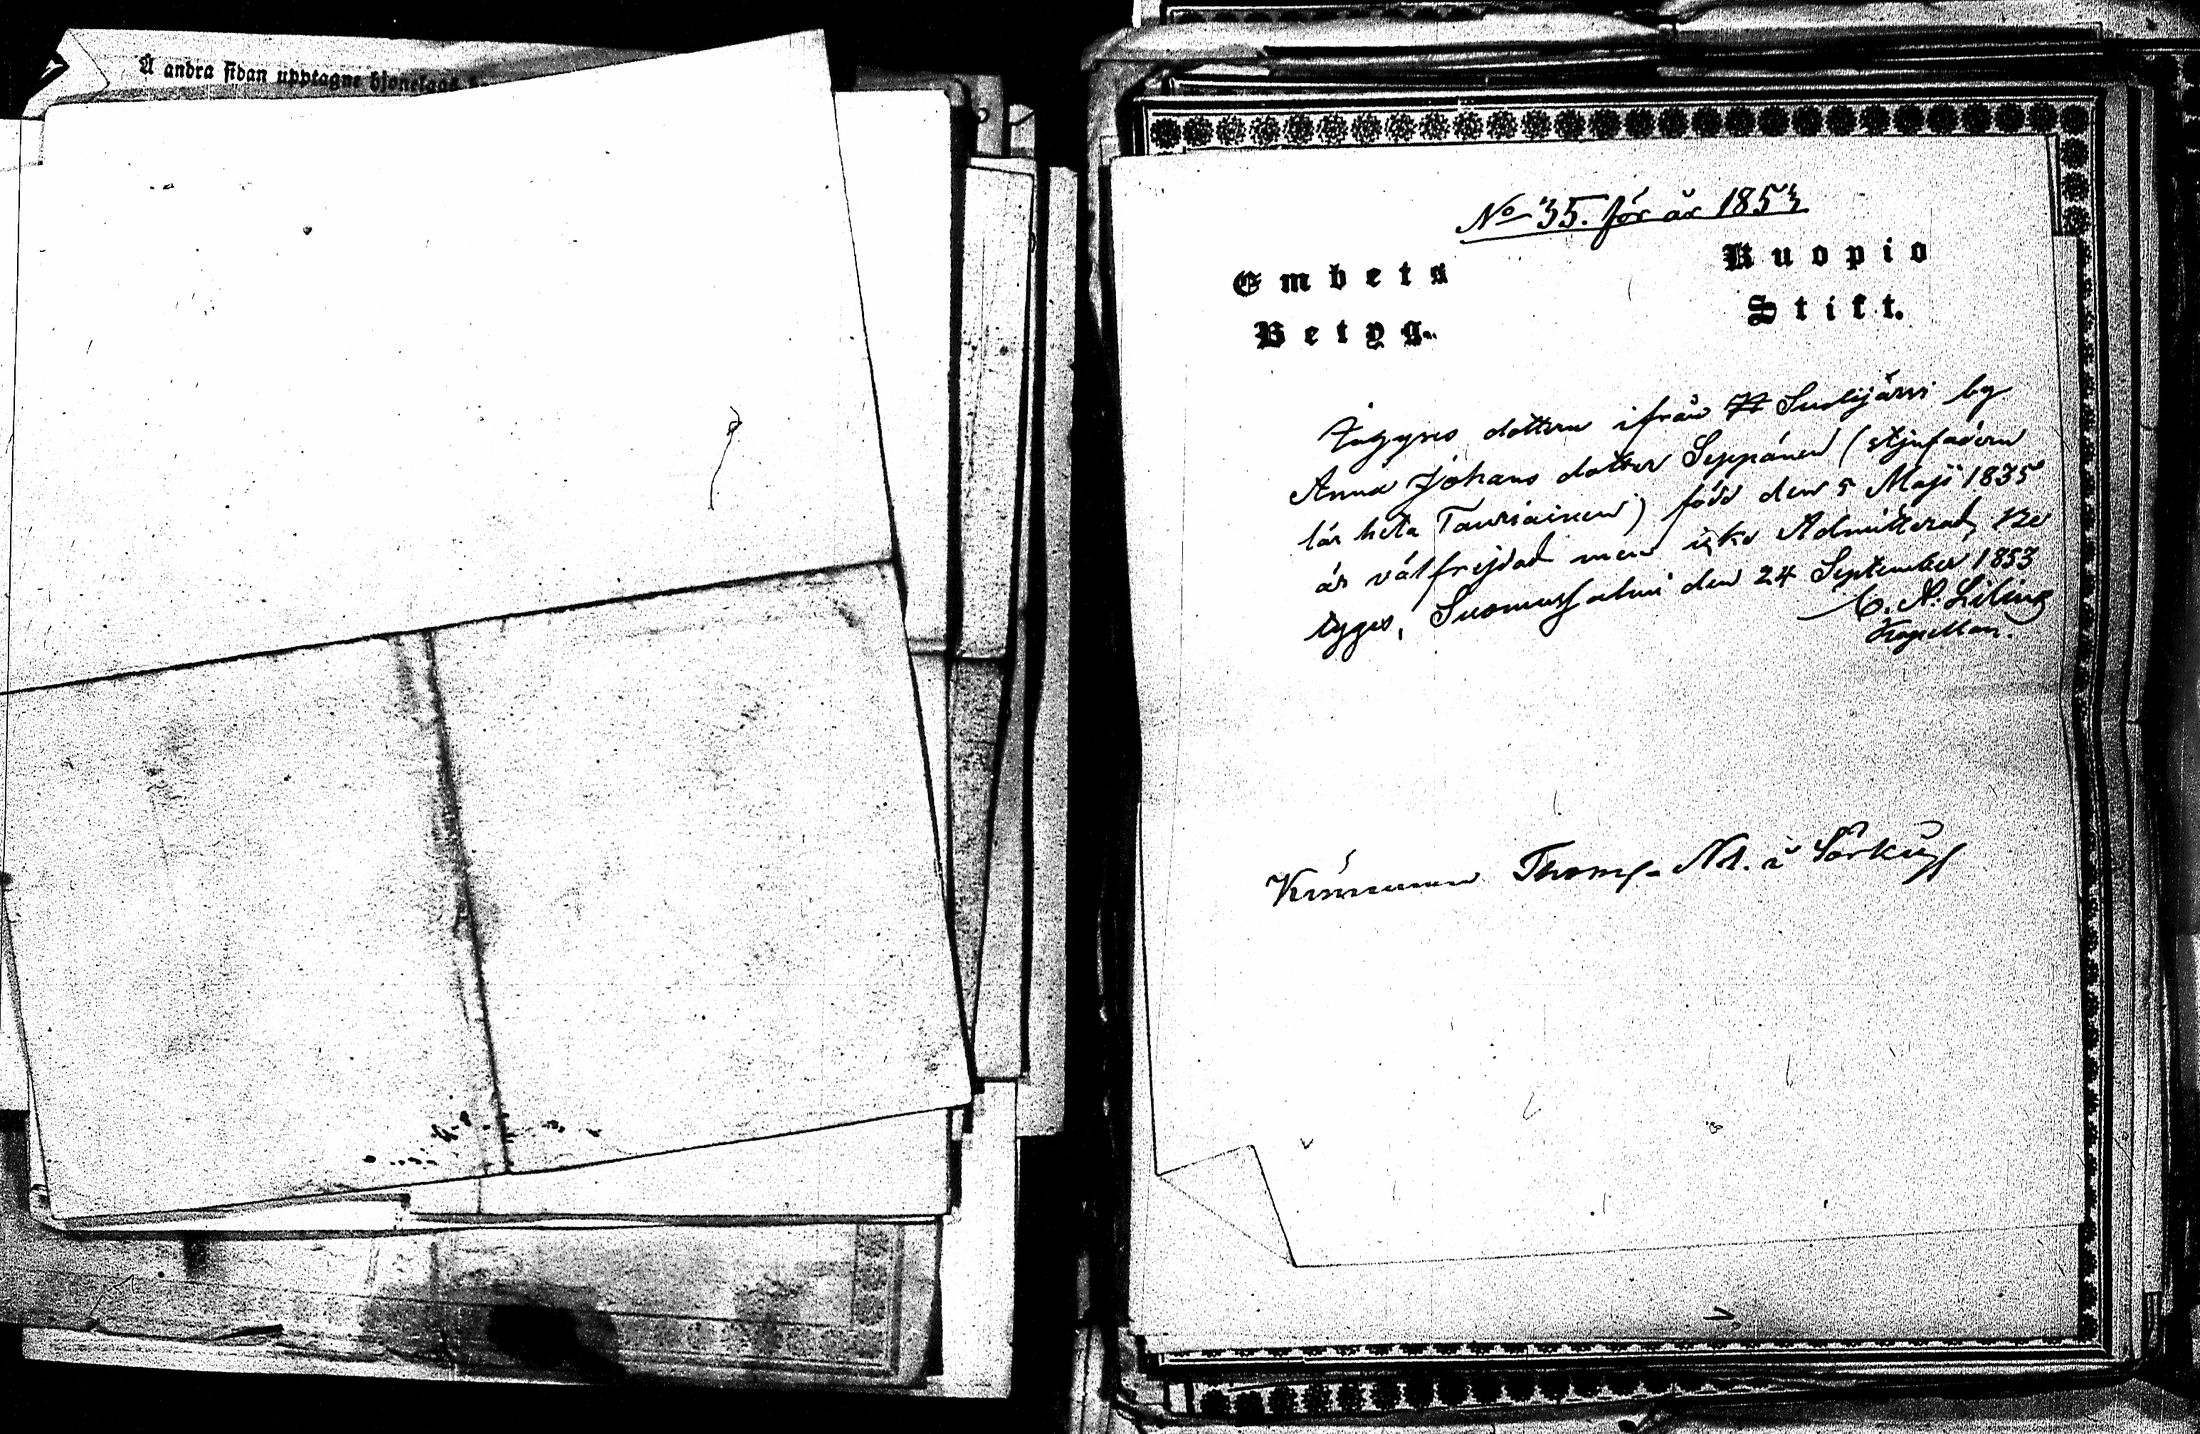 Å andra sidan upptagne
No 35. för år 1853
Embets
Betyg.
Kuopio
Stift.
Inhyses dottern ifrån Suolijärvi by
Anna Johans dotter Seppänen (styfadern
lär heta Tauriainen) född den 5 Maji 1835
är välfrejdad men icke Admitterad, Be
tyges, Suomussalmi den 24 September 1853
Kapellan.
Thoms. N1. å